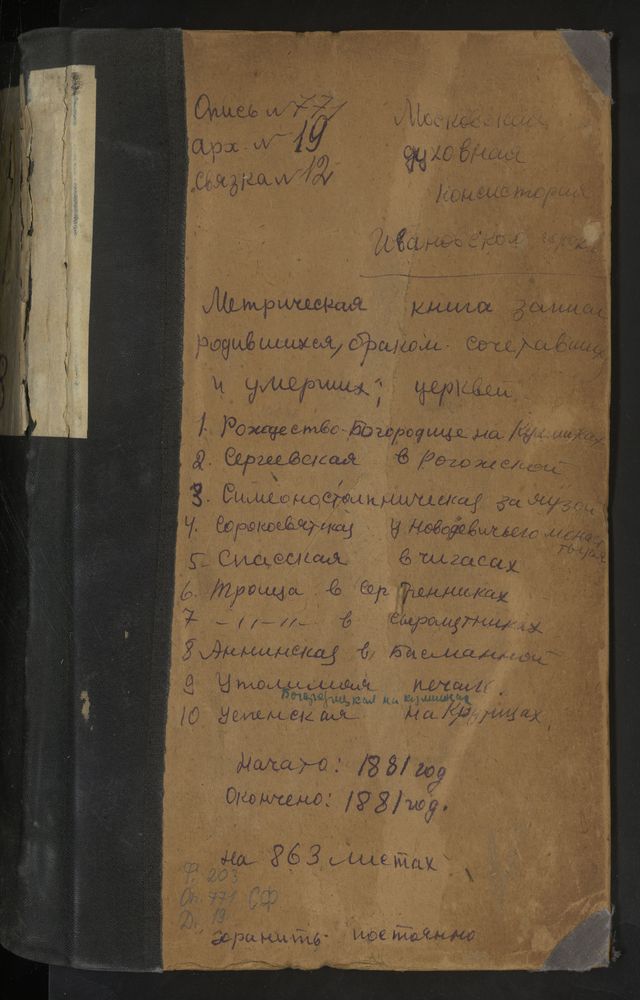 Опись № 771
арх. № 19
Связка № 12
Московская
духовная
консистория
Ивановского сорока
Метрическая книга записи
родившихся, браком сочетавших
и умерших; церквей
1. Рождество-Богородице на Кулишках
2. Сергеевская в Рогожской
3. Симеоностолпническая за Яузой
4. Сорокосвятская у Новодевичьего монастыря
5. Спасская в Чигасах
6. Троица в Серебренниках
7 -"-"- в Сыромятниках
8 Аннинская в Басманной
9 Утолимая печали.
Богородицкая на кулишках
10 Успенская на Крутицах.
Начато: 1881 год
Окончено: 1881 год.
на 863 листах
Ф. 203
Оп. 771 СФ
Д. 19
хранить постоянно